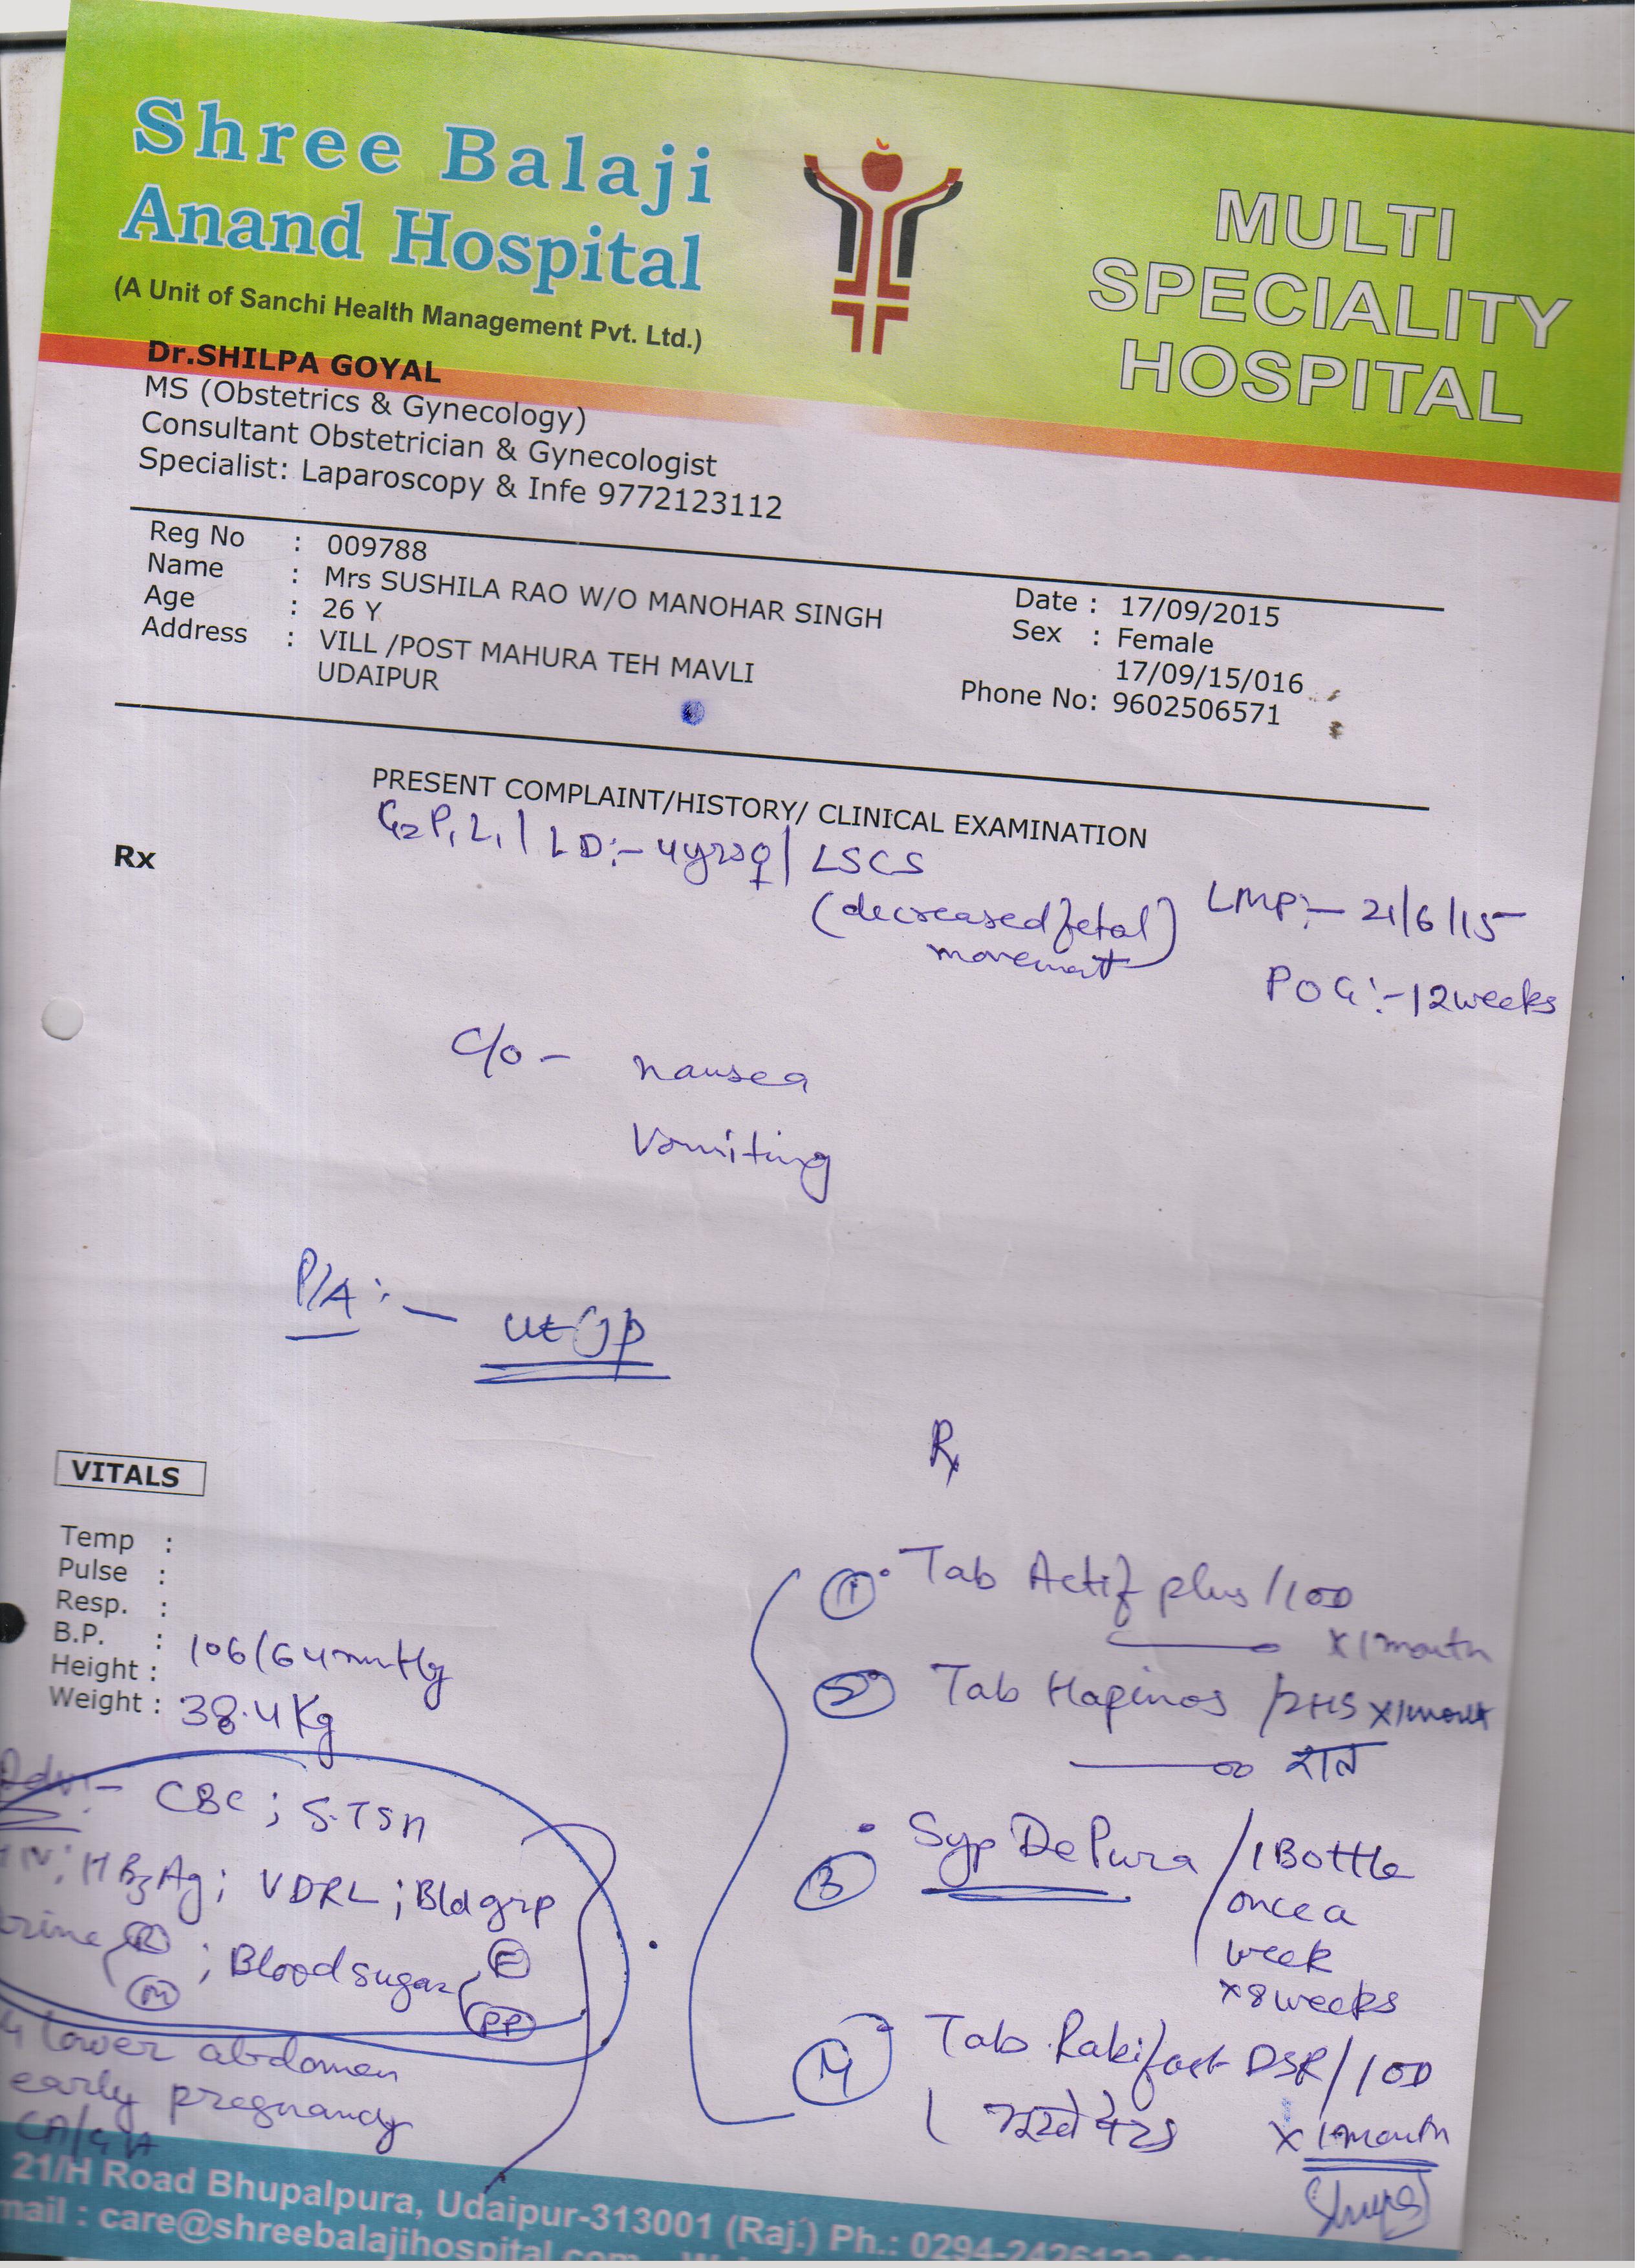 Shree Balaji
Anand Hospital
(A Unit of Sanchi Health Management Pvt. Ltd.)
MULTI
SPECIALITY
HOSPITAL
Dr.SHILPA GOYAL
MS (Obstetrics & Gynecology)
Consultant Obstetrician & Gynecologist
Specialist: Laparoscopy & Infe 9772123112
Reg No : 009788
Name : Mrs SUSHILA RAO W/O MANOHAR SINGH
Age : 26 Y
Address : VILL /POST MAHURA TEH MAVLI
UDAIPUR
Date : 17/09/2015
Sex : Female
17/09/15/016
Phone No: 9602506571
PRESENT COMPLAINT/HISTORY/ CLINICAL EXAMINATION
Rx
G2P1L1 | LD:- 4yrs♀ | LSCS
(decreased fetal movement)
LMP:- 21/6/15
POG:- 12 weeks
C/o - nausea
Vomiting
P/A:- ut
VITALS
Temp :
Pulse :
Resp. :
B.P. : 106/64mmHg
Height :
Weight : 38.4 Kg
Adv:- CBC; S.TSH
HIV; HBsAg; VDRL; Bld grp
Urine R M ; Blood sugar F PP
lower abdomen
early pregnancy
Rx
1. Tab Actif plus / 1 OD
x 1 month
2. Tab Hapinos / 2 HS x 1 month
रात
3. Syp DePura / 1 Bottle
once a
week
x 8 weeks
4. Tab Rabifast DSR / 1 OD
भूखे पेट x 1 month
21/H Road Bhupalpura, Udaipur-313001 (Raj.) Ph.: 0294-2426122
mail : care@shreebalajihospital.com